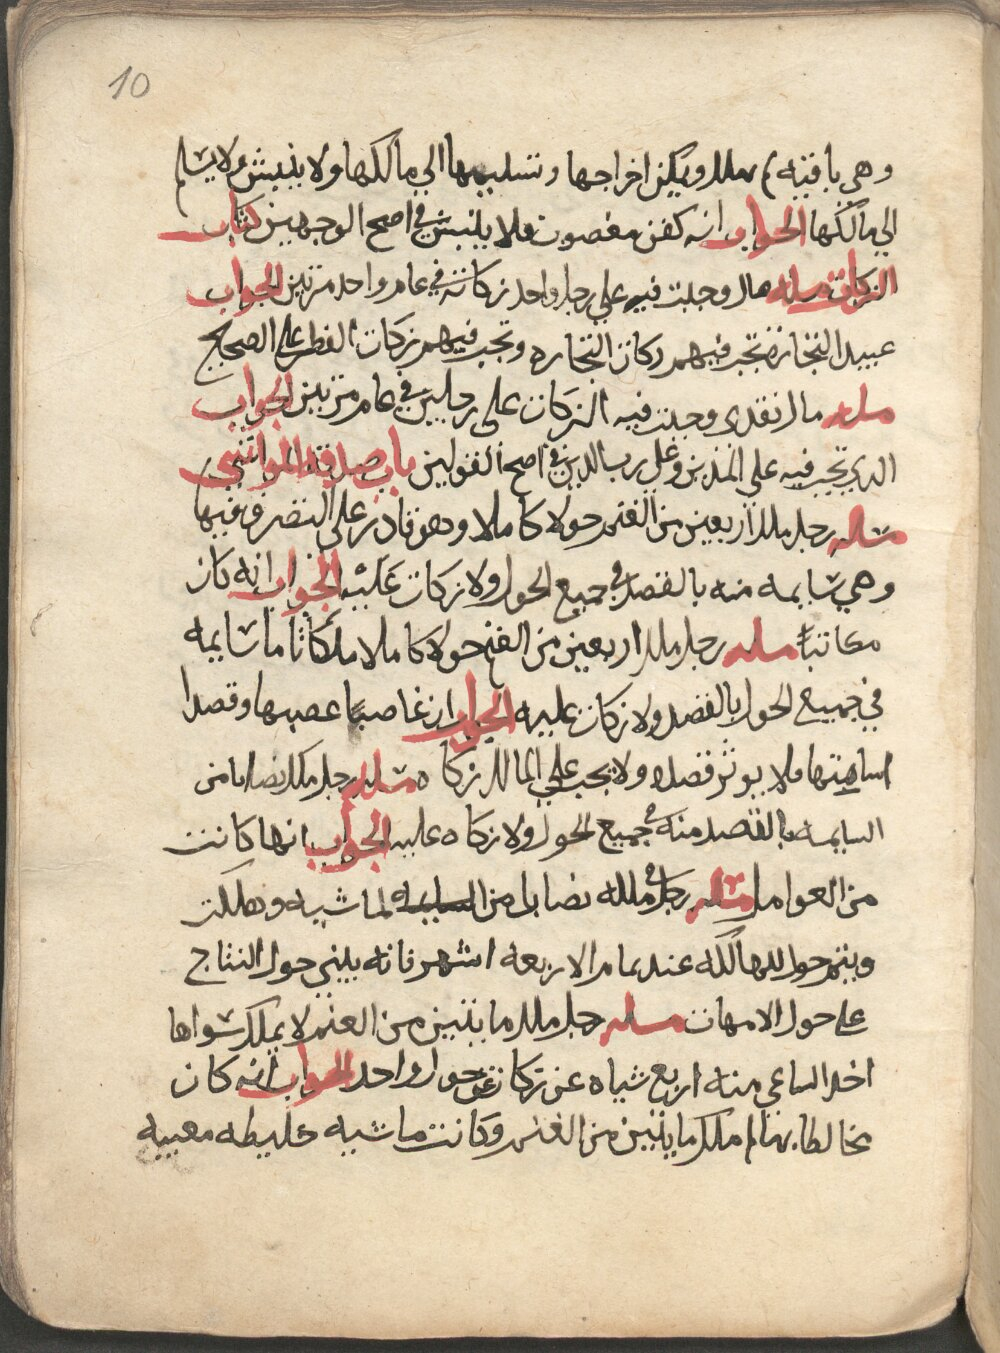 10
وهي باقيه لم تملك ويمكن اخراجها وتسليمها الي مالكها ولا ينبش ولا يسلم
الي مالكها الجواب انه كفن مغصوب فلا ينبش في اصح الوجهين كتاب
الزكات مسله مال وجبت فيه علي رجل واحد زكاته في عام واحد مرتين الجواب
عبيد التجارة تجب فيهم زكات التجاره وتجب فيهم زكات الفطر علي الصحيح
مسله مال نقدي وجبت فيه الزكات على رجلين في عام مرتين الجواب
الدي تجب فيه علي المدين وعلى رب الدين في اصح القولين باب صدقة المواشي
مسله رجل ملك اربعين من الغنم حولا كاملا وهو قادر على التصرف فيها
وهي سايمه منه بالقصد في جميع الحول ولا زكات عليه الجواب انه كان
مكاتبا مسله رجل ملك اربعين من الغنم حولا كاملا ملكا تاما سايمه
في جميع الحول بالقصد ولا زكات عليه الجواب ان غاصبا غصبها وقصد
اسامتها فلا يوثر قصده ولا يجب علي المالك زكاه مسله رجل ملك نصابا من
السايمه بالقصد منه في جميع الحول ولا زكاه عليه الجواب انها كانت
من العوامل مسله رجل في ملكه نصاب من السايمه لماشيه وهلكت
ويتم حول الهالكه عند تمام الاربعه اشهر فانه يبني حول النتاج
على حول الامهات مسله رجل ملك مايتين من الغنم لا يملك سواها
اخد الساعي منه اربع شياه عن زكاة حول واحد الجواب انه كان
مخالطا بها لم ملك مايتين من الغنم وكانت ماشيه خليطه معيبه